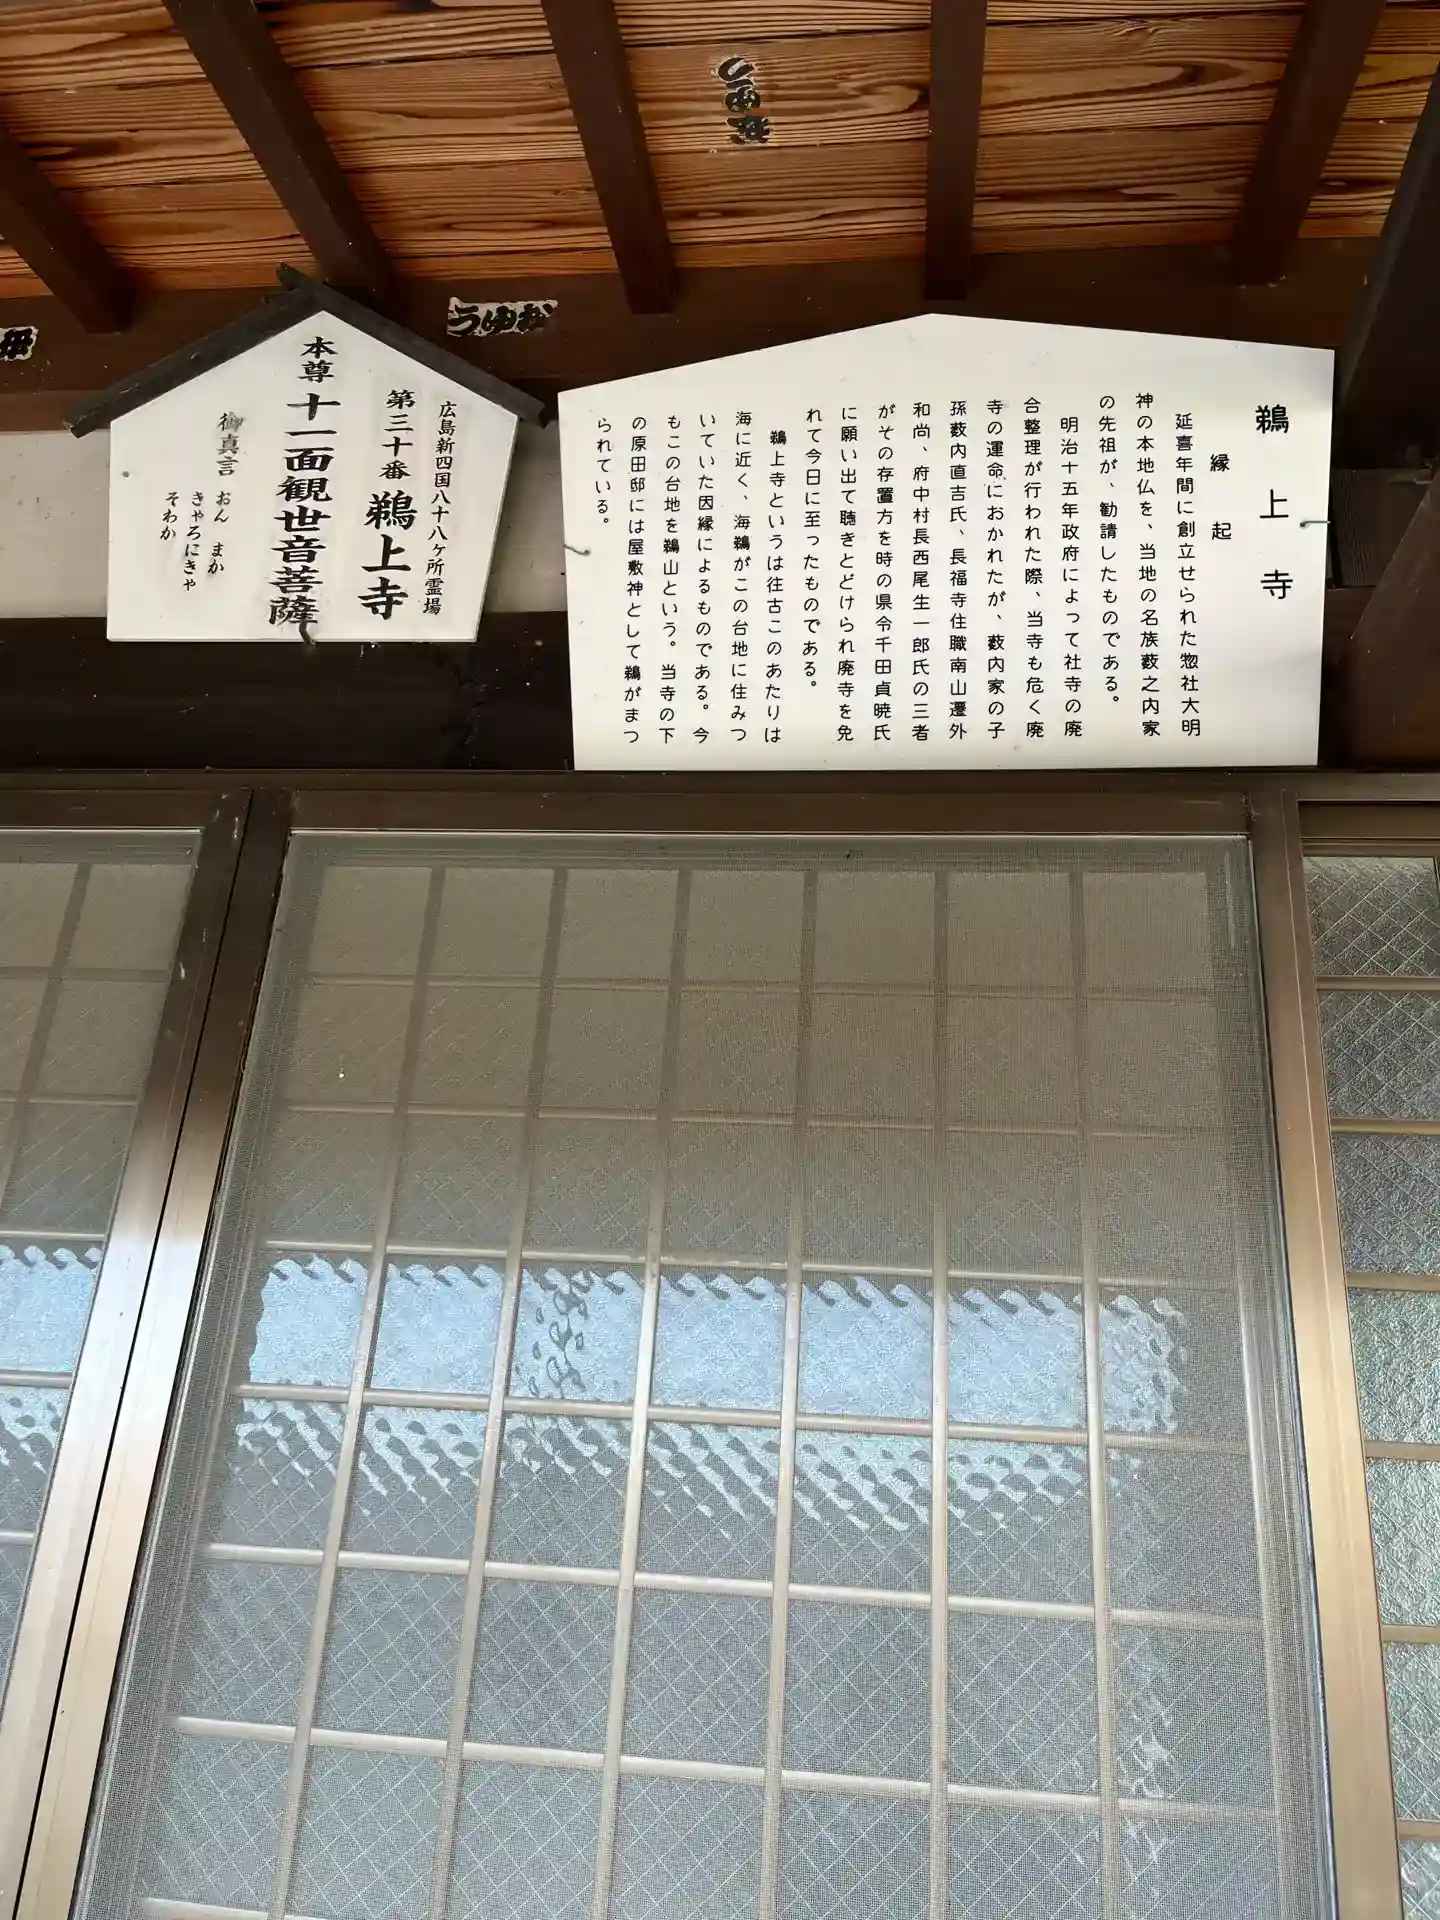 鵜上寺
縁起
延喜年間に創立せられた惣社大明
神の本地仏を、当地の名族薮之内家
の先祖が、勧請したものである。
明治十五年政府によって社寺の廃
合整理が行われた際、当寺も危く廃
寺の運命におかれたが、薮内家の子
孫薮内直吉氏、長福寺住職南山遷外
和尚、府中村長西尾生一郎氏の三者
がその存置方を時の県令千田貞暁氏
に願い出て聴きとどけられ廃寺を免
れて今日に至ったものである。
鵜上寺というは往古このあたりは
海に近く、海鵜がこの台地に住みつ
いていた因縁によるものである。今
もこの台地を鵜山という。当寺の下
の原田邸には屋敷神として鵜がまつ
られている。
広島新四国八十八ヶ所霊場
第三十番 鵜上寺
本尊 十一面観世音菩薩
御真言 おん まか
きゃろにきゃ
そわか